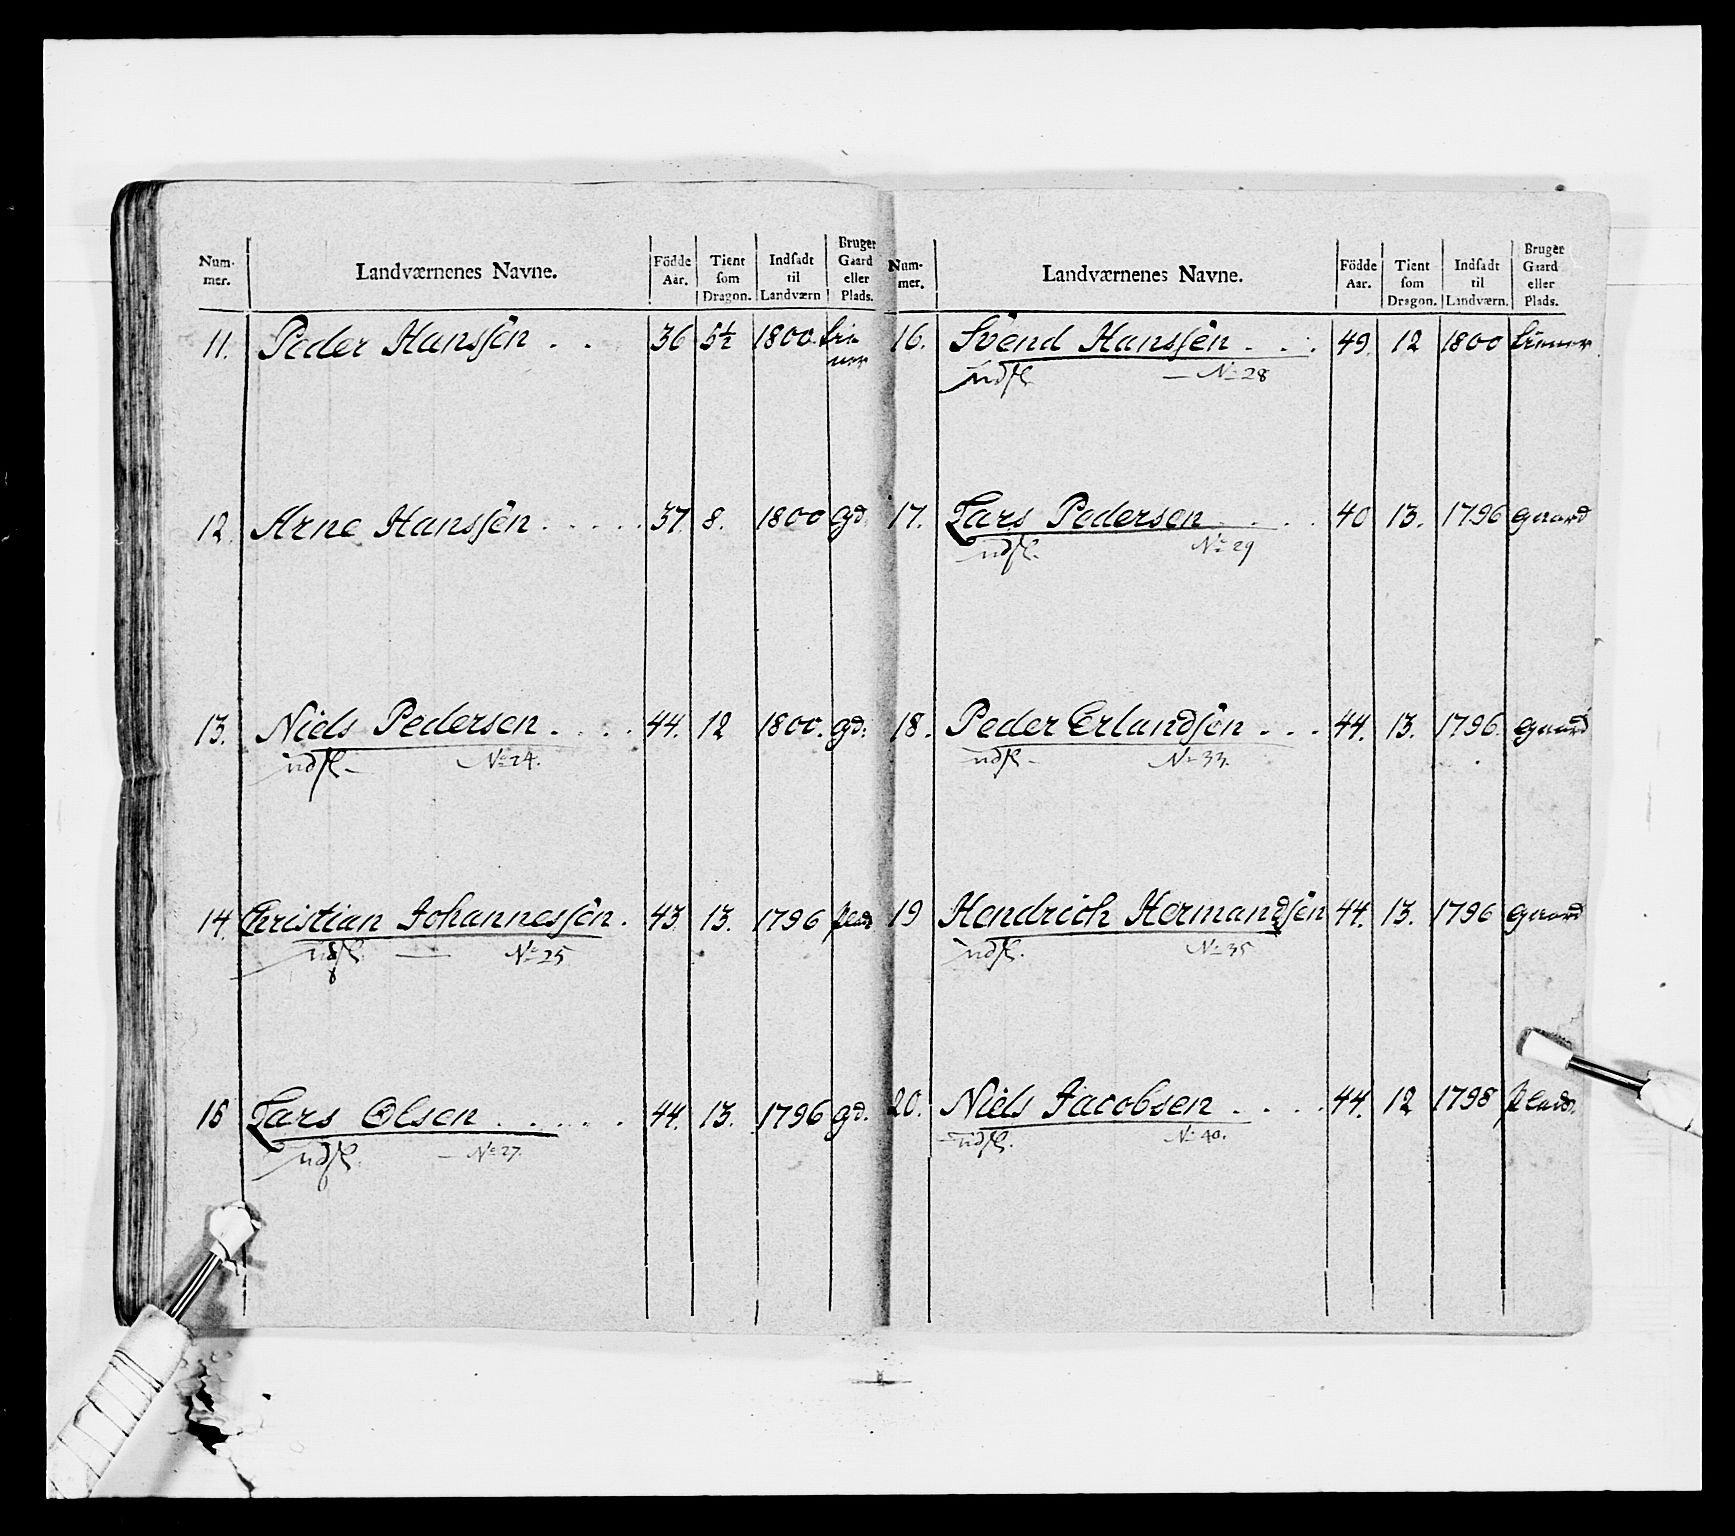 Num- mer. Landværnenes Navne. Födde Aar. Tient som Dragon. Indsadt til Landværn Bruger Gaard eller Plads.
11. Peder Hanssön . . 36 5½ 1800.
12. Arne Hanssön . . . . . 37. 8. 1800 gd.
13. Niels Pedersen . . . . 44. 12 1800. gd.
udsl - No 24.
14. Christian Johannessön . 43. 13. 1796
udsl. No 25
15 Lars Olsen . . . . . 44. 13. 1796 gd.
udsl. - No 27.
Num- mer. Landværnenes Navne. Födde Aar. Tient som Dragon. Indsadt til Landværn. Bruger Gaard eller Plads.
16. Svend Hanssön . . . 49. 12 1800
udsl - No 28
17. Lars Pedersen . . . . 40 13. 1796 gaard
udsl. No 29
18. Peder Erlandsön . . . 44. 13. 1796. gaard
udsl - No 33.
19 Hendrich Hermandsen 44. 13. 1796 gaard
udsl. No 35
20. Niels Jacobsen . . . . 44. 12 1798 plads.
udsl. No 40.